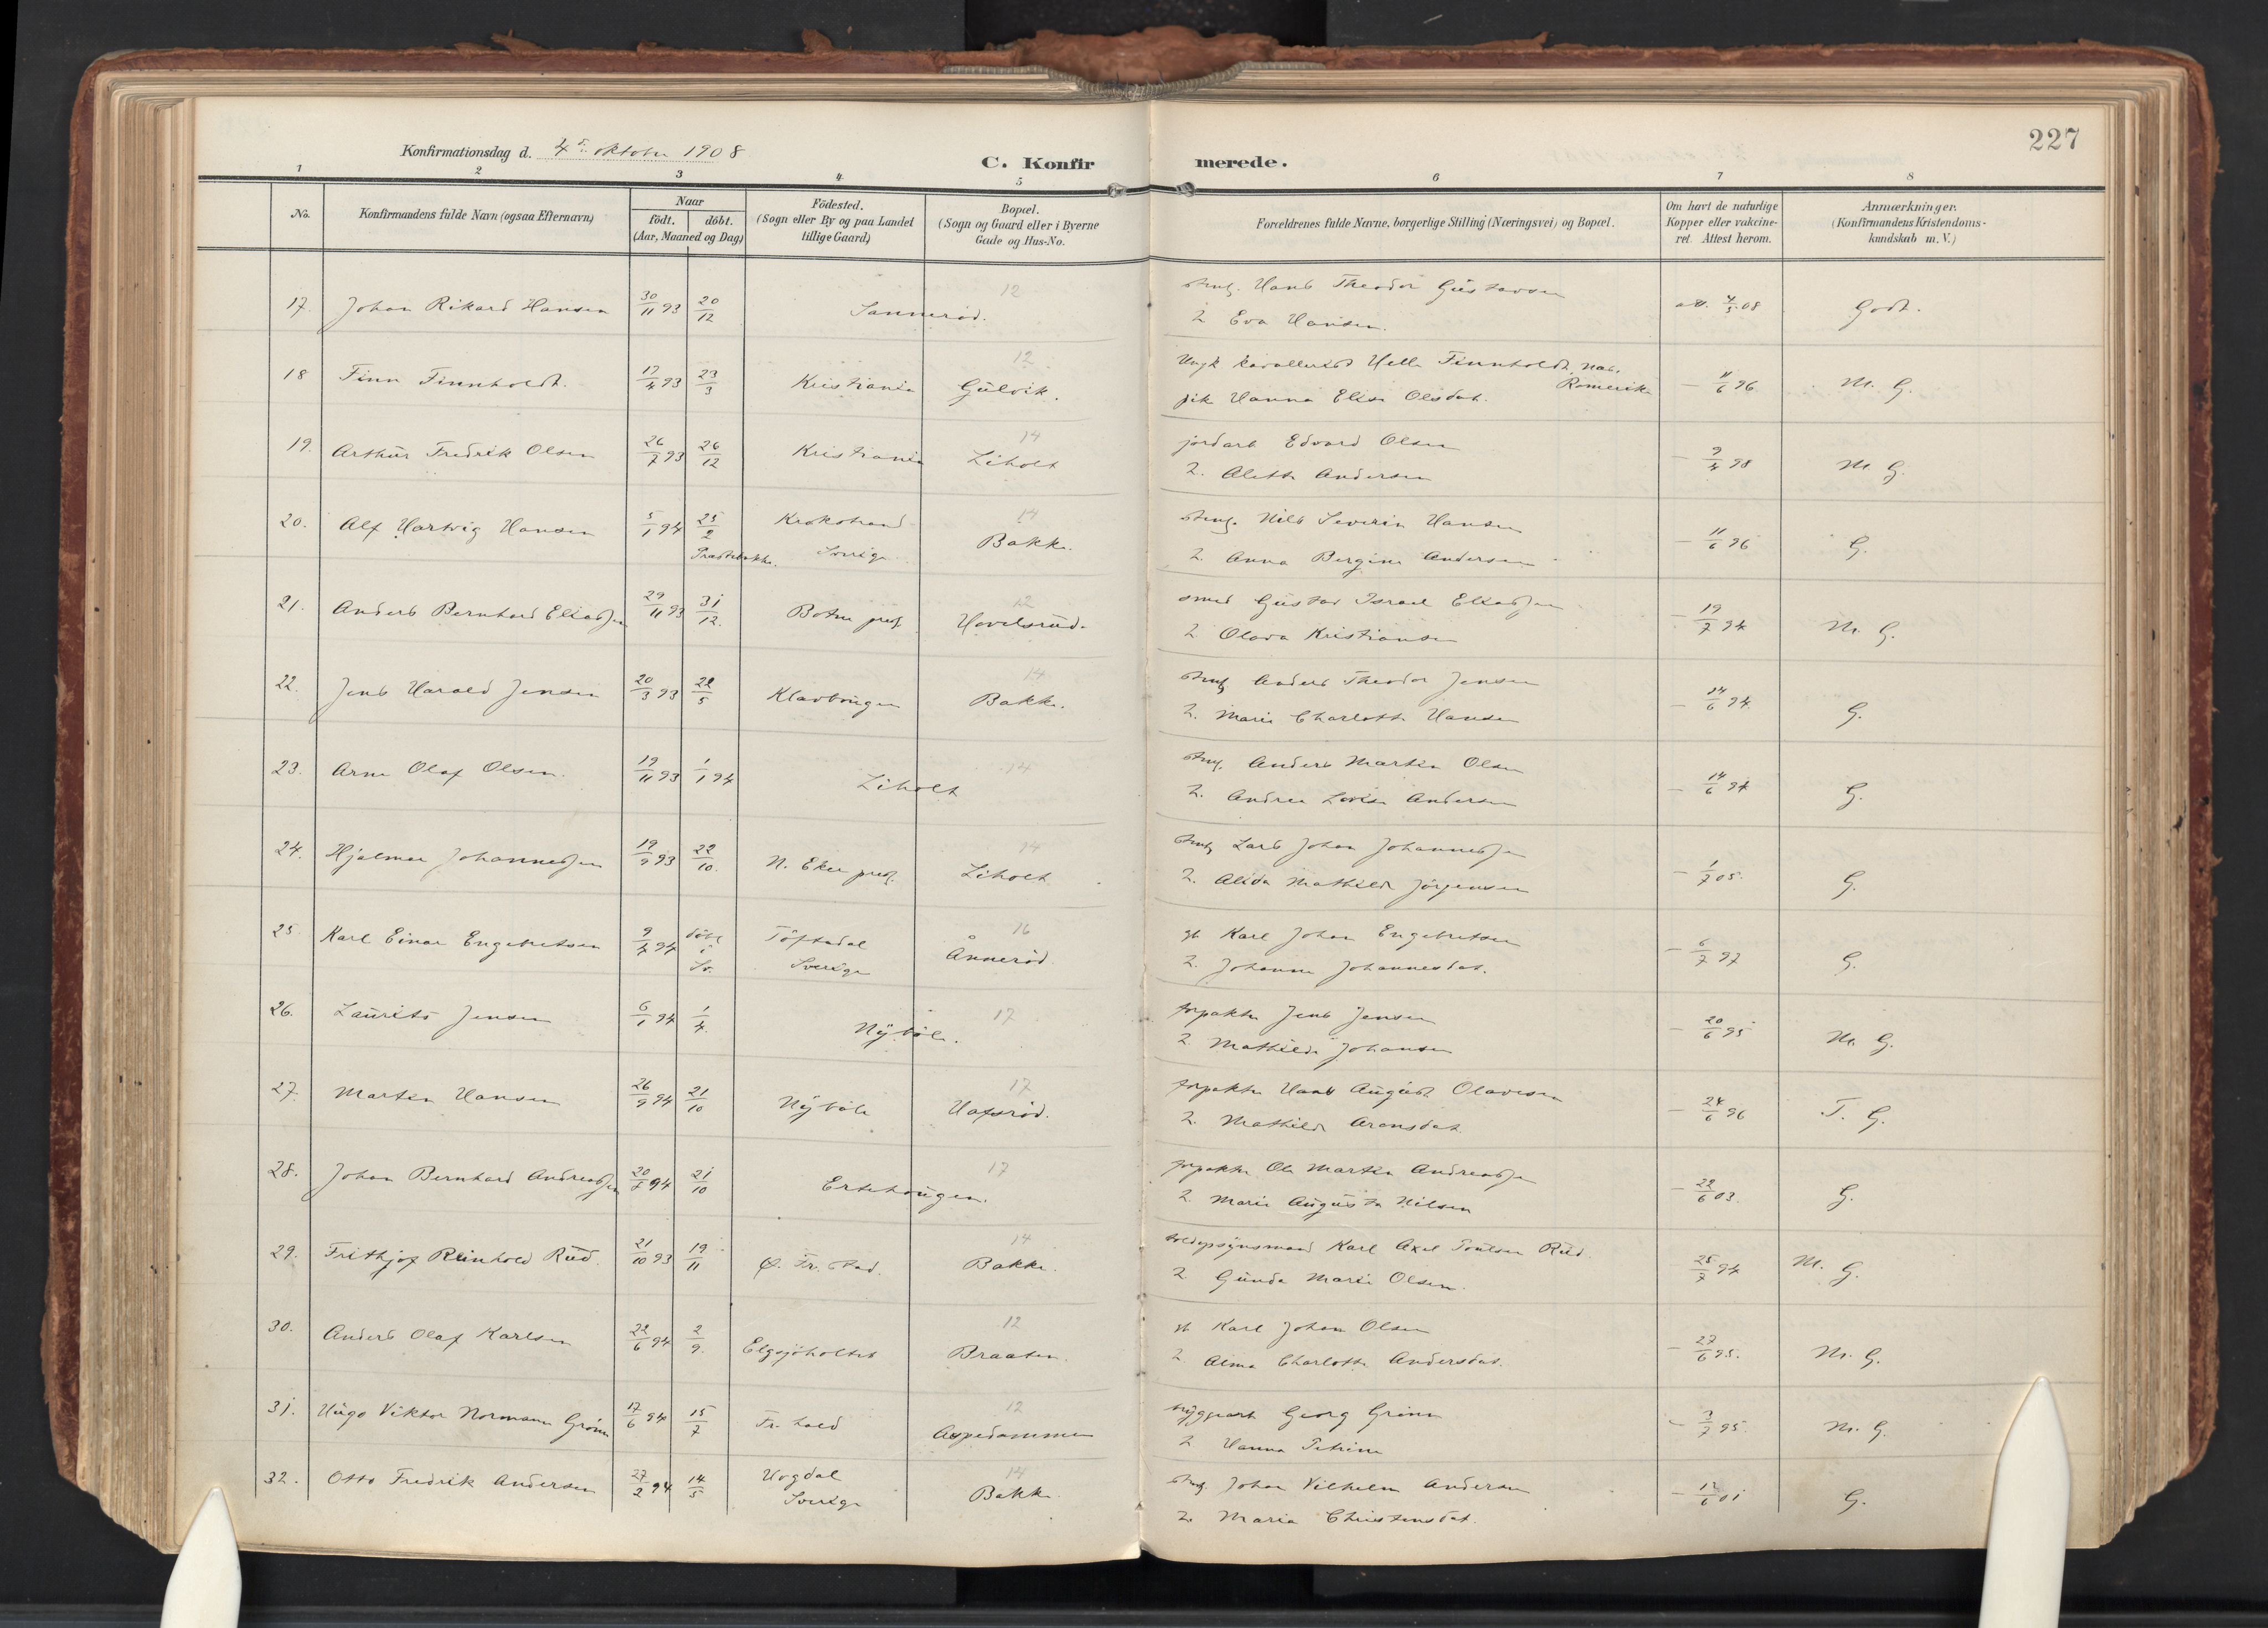 227
Konfirmationsdag d. 4de oktober 1908
C. Konfirmerede.
1 2 3 4 5 6 7 8
No.
Konfirmandens fulde Navn (ogsaa Efternavn)
Naar
födt. döbt.
(Aar, Maaned og Dag)
Födested.
(Sogn eller By og paa Landet
tillige Gaard)
Bopæl.
(Sogn og Gaard eller i Byerne
Gade og Hus-No.
Forældrenes fulde Navne, borgerlige Stilling (Næringsvei) og Bopæl.
Om havt de naturlige
Kopper eller vakcine-
ret. Attest herom.
Anmærkninger.
(Konfirmandens Kristendoms-
kundskab m. V.)
12
17. Johan Rikard Hansen 30/11 93 20/12 Sannerød. Hans Theodor Gustavsen att. 4/5 08 Godt.
2 Eva Hansen.
12
18 Finn Finnholdt. 17/4 93 23/3 Kristiania Gulvik. Ungk Helle Finnholdt, nas. Romerike — 11/6 96 M. G.
pik Hanna Elise Olsdat.
14
19. Arthur Fredrik Olsen 26/7 93 26/12 Kristiania Liholt jordarb Edvard Olsen — 9/4 98 M. G.
2. Alette Andersen
14
20. Alf Hartvig Hansen 5/1 94 25/2 Krokstrand Sverige Bakke. Nils Severin Hansen — 11/6 96 G.
Præstebakke.
2 Anna Bergine Andersen
12
21. Anders Bernhard Eliassen 29/11 93 31/12. Botne præst. Hovelsrud. smed Gustav Israel Eliassen — 19/7 94 M. G.
2 Olava Kristiansen
14
22. Jens Harald Jensen 20/3 93 22/5 Klavbøugen Bakke. Anders Theodor Jensen — 14/6 94. G.
2. Marie Charlotte Hansen
14
23. Arne Olaf Olsen. 19/11 93 1/1 94 Liholt Anders Martin Olsen — 14/6 94 G.
2. Andrea Lovise Andersen
14
24. Hjalmar Johannessen 19/9 93 22/10. N. Eker præst. Liholt Lars Johan Johannessen — 1/7 05. G.
2. Alida Mathilde Jörgensen
16
25 Karl Einar Engebretsen 9/4 94 döbt i Sv. Töftedal Sverige Ånnerød gb Karl Johan Engebretsen — 6/7 97 G.
2. Johanne Johannesdat.
17
26. Laurits Jensen 6/1 94 1/4. Nÿböle. forpakter Jens Jensen — 20/6 95 M. G.
2 Mathilde Johansen
17
27. Martin Hansen 26/9 94 21/10 Nÿböle Hafsrød. forpakter Hans August Olavesen — 24/6 96 T. G.
2. Mathilde Aronsdat
17
28. Johan Bernhard Andreassen 20/7 94 21/10 Ertehaugen. forpakter Ole Martin Andreassen — 22/6 03 G.
2. Marie Augusta Nilsen
14
29. Frithjof Reinhold Rud. 21/10 93 19/11 Ø. Fr. stad. Bakke. toldopsynsmand Karl Axel Poulsen Rud. — 25/7 94 M. G.
2 Gunda Marie Olsen.
12
30. Anders Olaf Karlsen 22/6 94 2/9. Elgsjöholtet Braaten. gb Karl Johan Olsen — 27/6 95. M. G.
2. Alma Charlotte Andersdat.
12
31. Hugo Viktor Normann Grönn 17/6 94 15/7 Fr. hald Aspedammen bryggearb Georg Grönn — 3/7 95. M. G.
2 Hanna Petrine
14
32. Otto Fredrik Andersen 27/2 94 14/5 Hogdal Sverige Bakke Johan Vilhelm Andersen — 12/6 01 G.
2. Maria Christensdat.